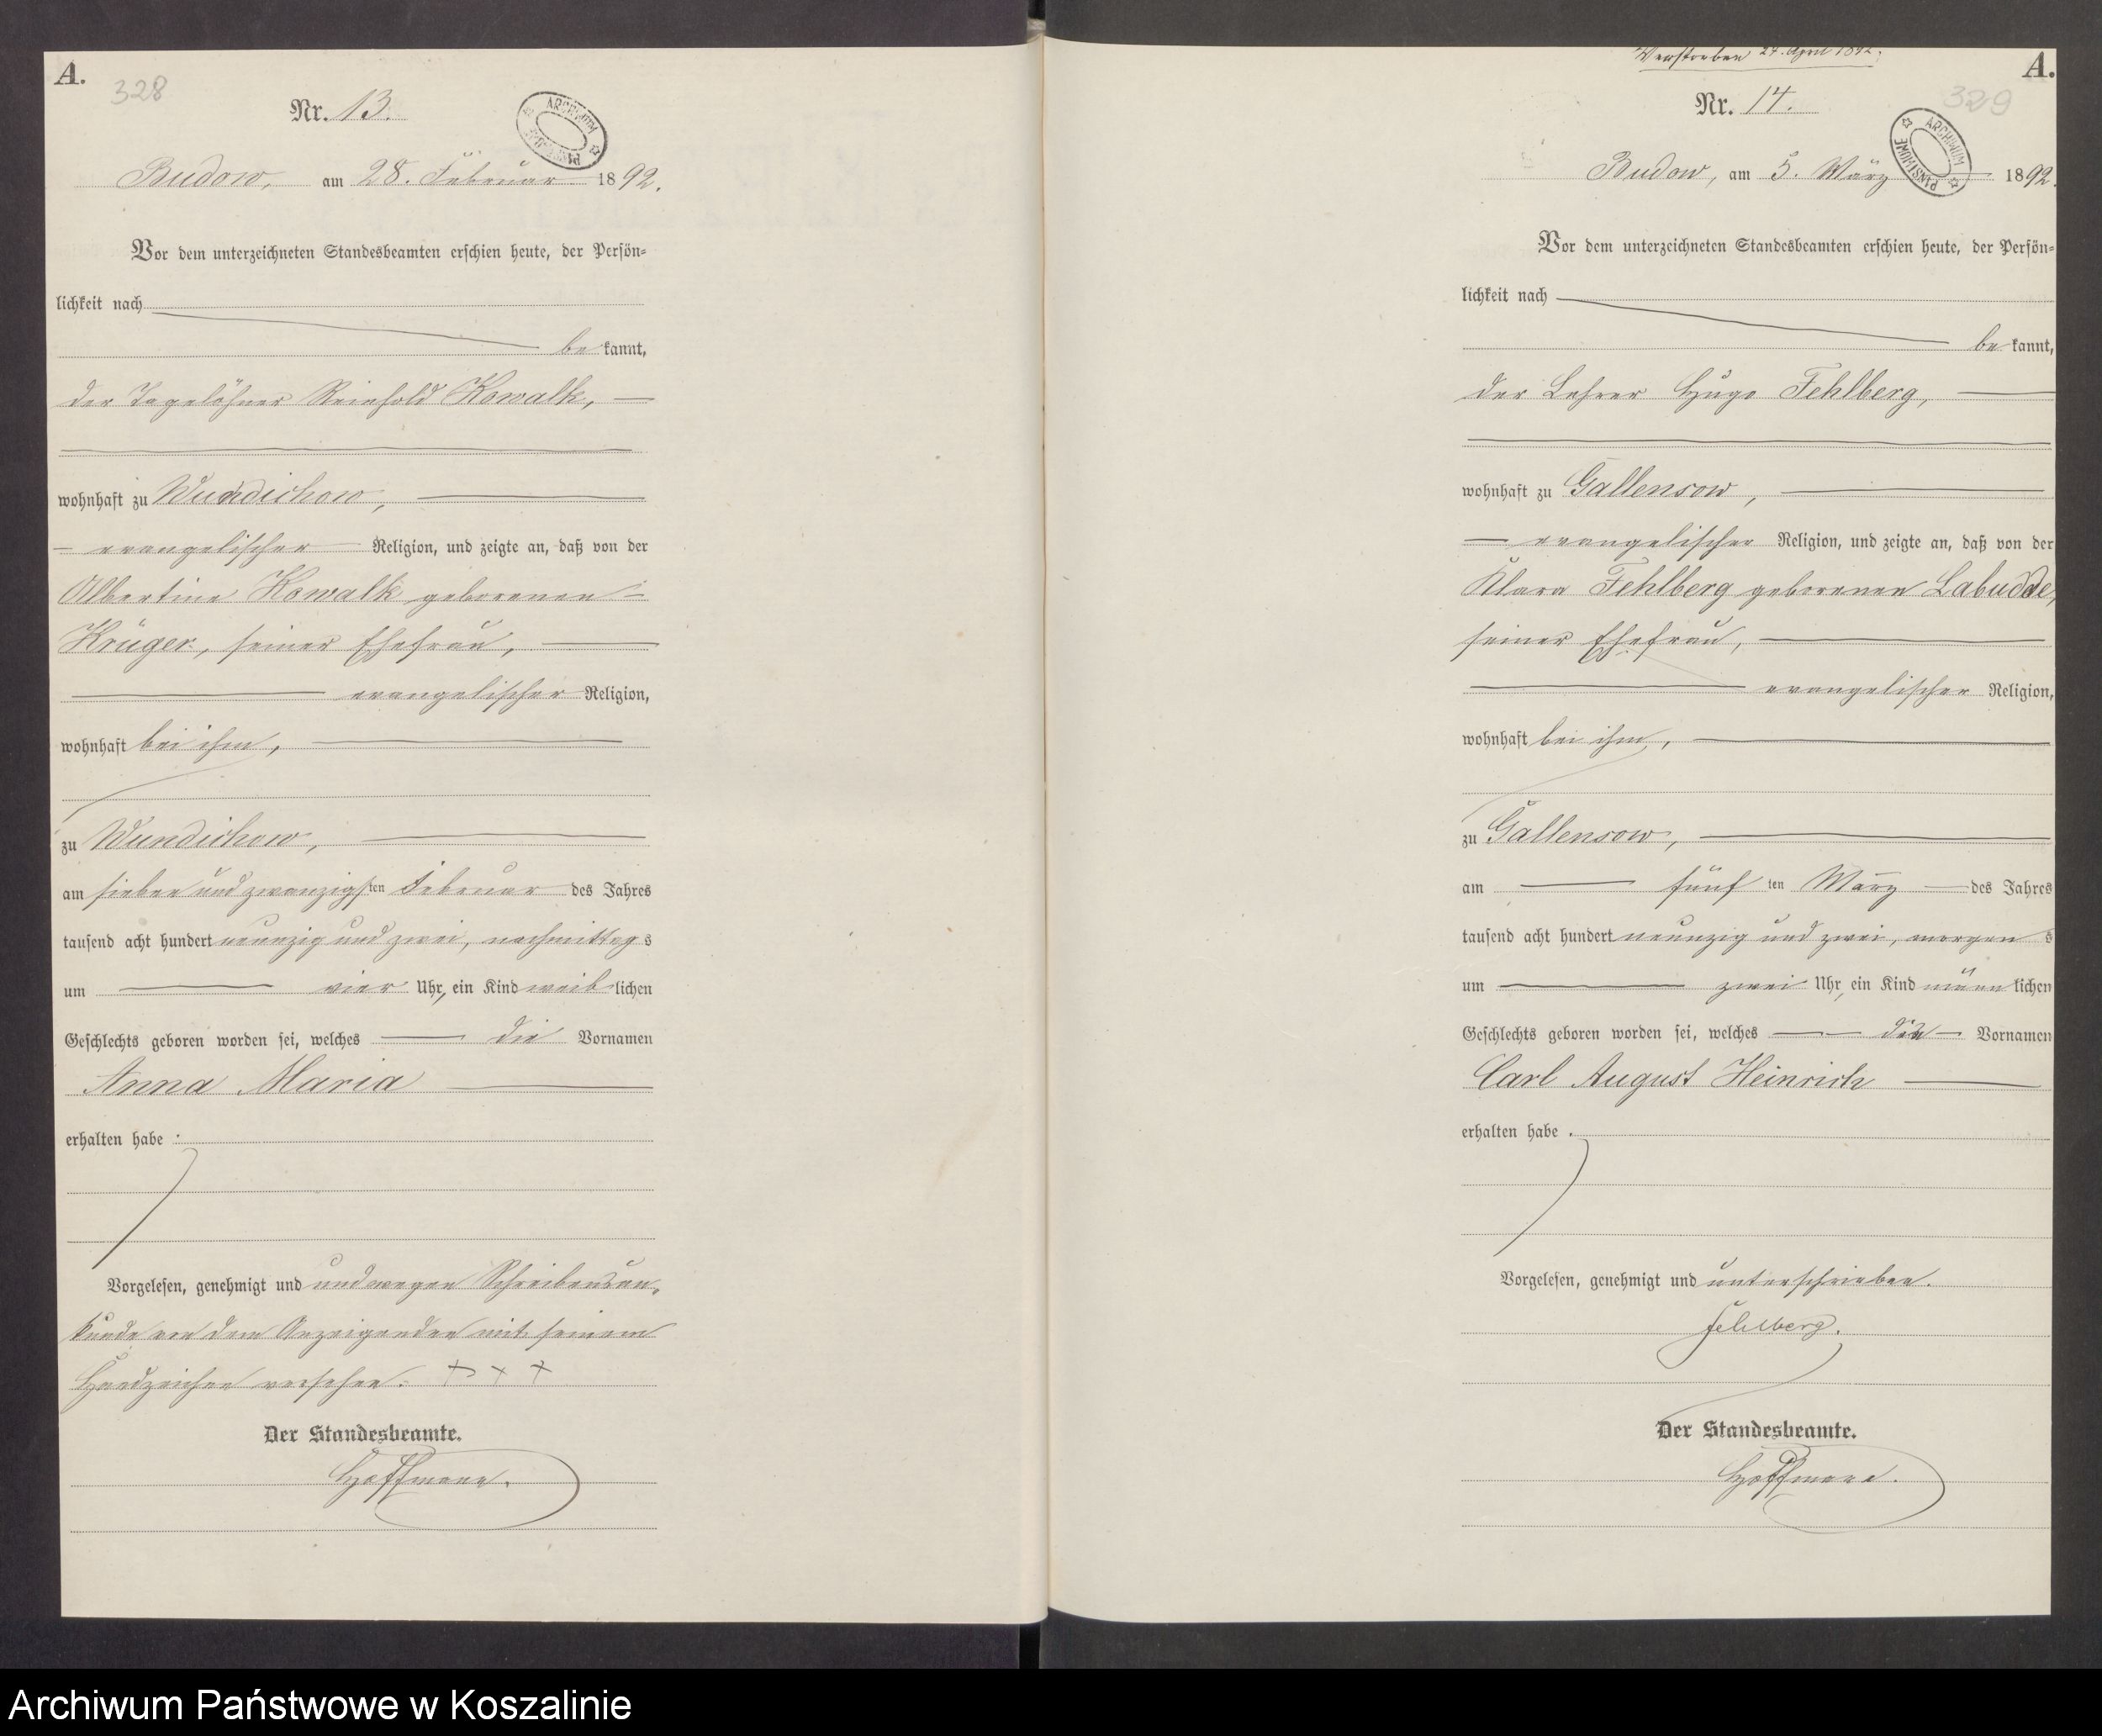 A.
328
Nr. 13.
ARCHIWUM PAŃSTWOWE
Budow, am 28. Februar 1892.
Vor dem unterzeichneten Standesbeamten erschien heute, der Persön-
lichkeit nach
be kannt,
der Tagelöhner Reinhold Kowalk,
wohnhaft zu Wundichow,
evangelischer Religion, und zeigte an, daß von der
Albertine Kowalk geborenen
Krüger, seiner Ehefrau,
evangelischer Religion,
wohnhaft bei ihm,
zu Wundichow,
am sieben und zwanzigsten Februar des Jahres
tausend acht hundert neunzig und zwei, nachmittags
um vier Uhr, ein Kind weiblichen
Geschlechts geboren worden sei, welches die Vornamen
Anna Maria
erhalten habe.
Vorgelesen, genehmigt und und wegen Schreibensun-
kunde von dem Anzeigenden mit seinem
Handzeichen versehen. + + +
Der Standesbeamte.
Hoffmann.
Verstorben 24. April 1892.
A.
329
Nr. 14.
ARCHIWUM PAŃSTWOWE
Budow, am 5. März 1892.
Vor dem unterzeichneten Standesbeamten erschien heute, der Persön-
lichkeit nach
be kannt,
der Lehrer Hugo Fehlberg,
wohnhaft zu Gallensow,
evangelischer Religion, und zeigte an, daß von der
Klara Fehlberg geborenen Labudde,
seiner Ehefrau,
evangelischer Religion,
wohnhaft bei ihm,
zu Gallensow,
am fünften März des Jahres
tausend acht hundert neunzig und zwei, morgens
um zwei Uhr, ein Kind männlichen
Geschlechts geboren worden sei, welches die Vornamen
Carl August Heinrich
erhalten habe.
Vorgelesen, genehmigt und unterschrieben.
Fehlberg.
Der Standesbeamte.
Hoffmann.
Archiwum Państwowe w Koszalinie